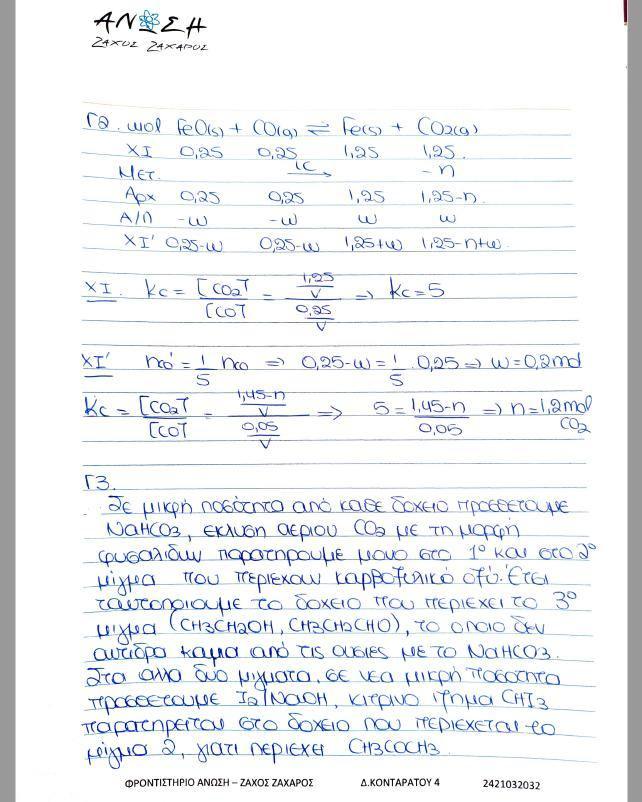 ΑΝΩΣΗ
ΖΑΧΟΣ ΖΑΧΑΡΟΣ
Γ2. mol FeO(s) + CO(g) ⇌ Fe(s) + CO2(g)
ΧΙ 0,25 0,25 1,25 1,25
Μετ. ic → -n
Αρχ 0,25 0,25 1,25 1,25-n
Α/Π -w -w w w
ΧΙ' 0,25-w 0,25-w 1,25+w 1,25-n+w
ΧΙ. Kc = [CO2] / [CO] = (1,25/V) / (0,25/V) ⇒ Kc=5
ΧΙ' nco' = 1/5 nco ⇒ 0,25-w = 1/5 · 0,25 ⇒ w=0,2mol
Kc = [CO2] / [CO] = (1,45-n/V) / (0,05/V) ⇒ 5 = 1,45-n / 0,05 ⇒ n=1,2mol CO2
Γ3.
Σε μικρή ποσότητα από καθε δοχειο προσθετουμε
NaHCO3, εκλυση αεριου CO2 με τη μορφή
φυσαλιδων παρατηρουμε μονο στο 1ο και στο 2ο
μίγμα που περιεχουν καρβοξυλικό οξύ. Έτσι
ταυτοποιουμε το δοχειο που περιεχει το 3ο
μιγμα (CH3CH2OH, CH3CH2CHO), το οποιο δεν
αντιδρα καμια από τις ουσιες με το NaHCO3.
Στα αλλα δυο μιγματα, σε νεα μικρή ποσότητα
προσθετουμε I2/NaOH, κιτρινο ιζημα CHI3
παρατηρειται στο δοχειο που περιεχεται το
μιγμα 2, γιατι περιεχει CH3COCH3.
ΦΡΟΝΤΙΣΤΗΡΙΟ ΑΝΩΣΗ – ΖΑΧΟΣ ΖΑΧΑΡΟΣ Δ.ΚΟΝΤΑΡΑΤΟΥ 4 2421032032